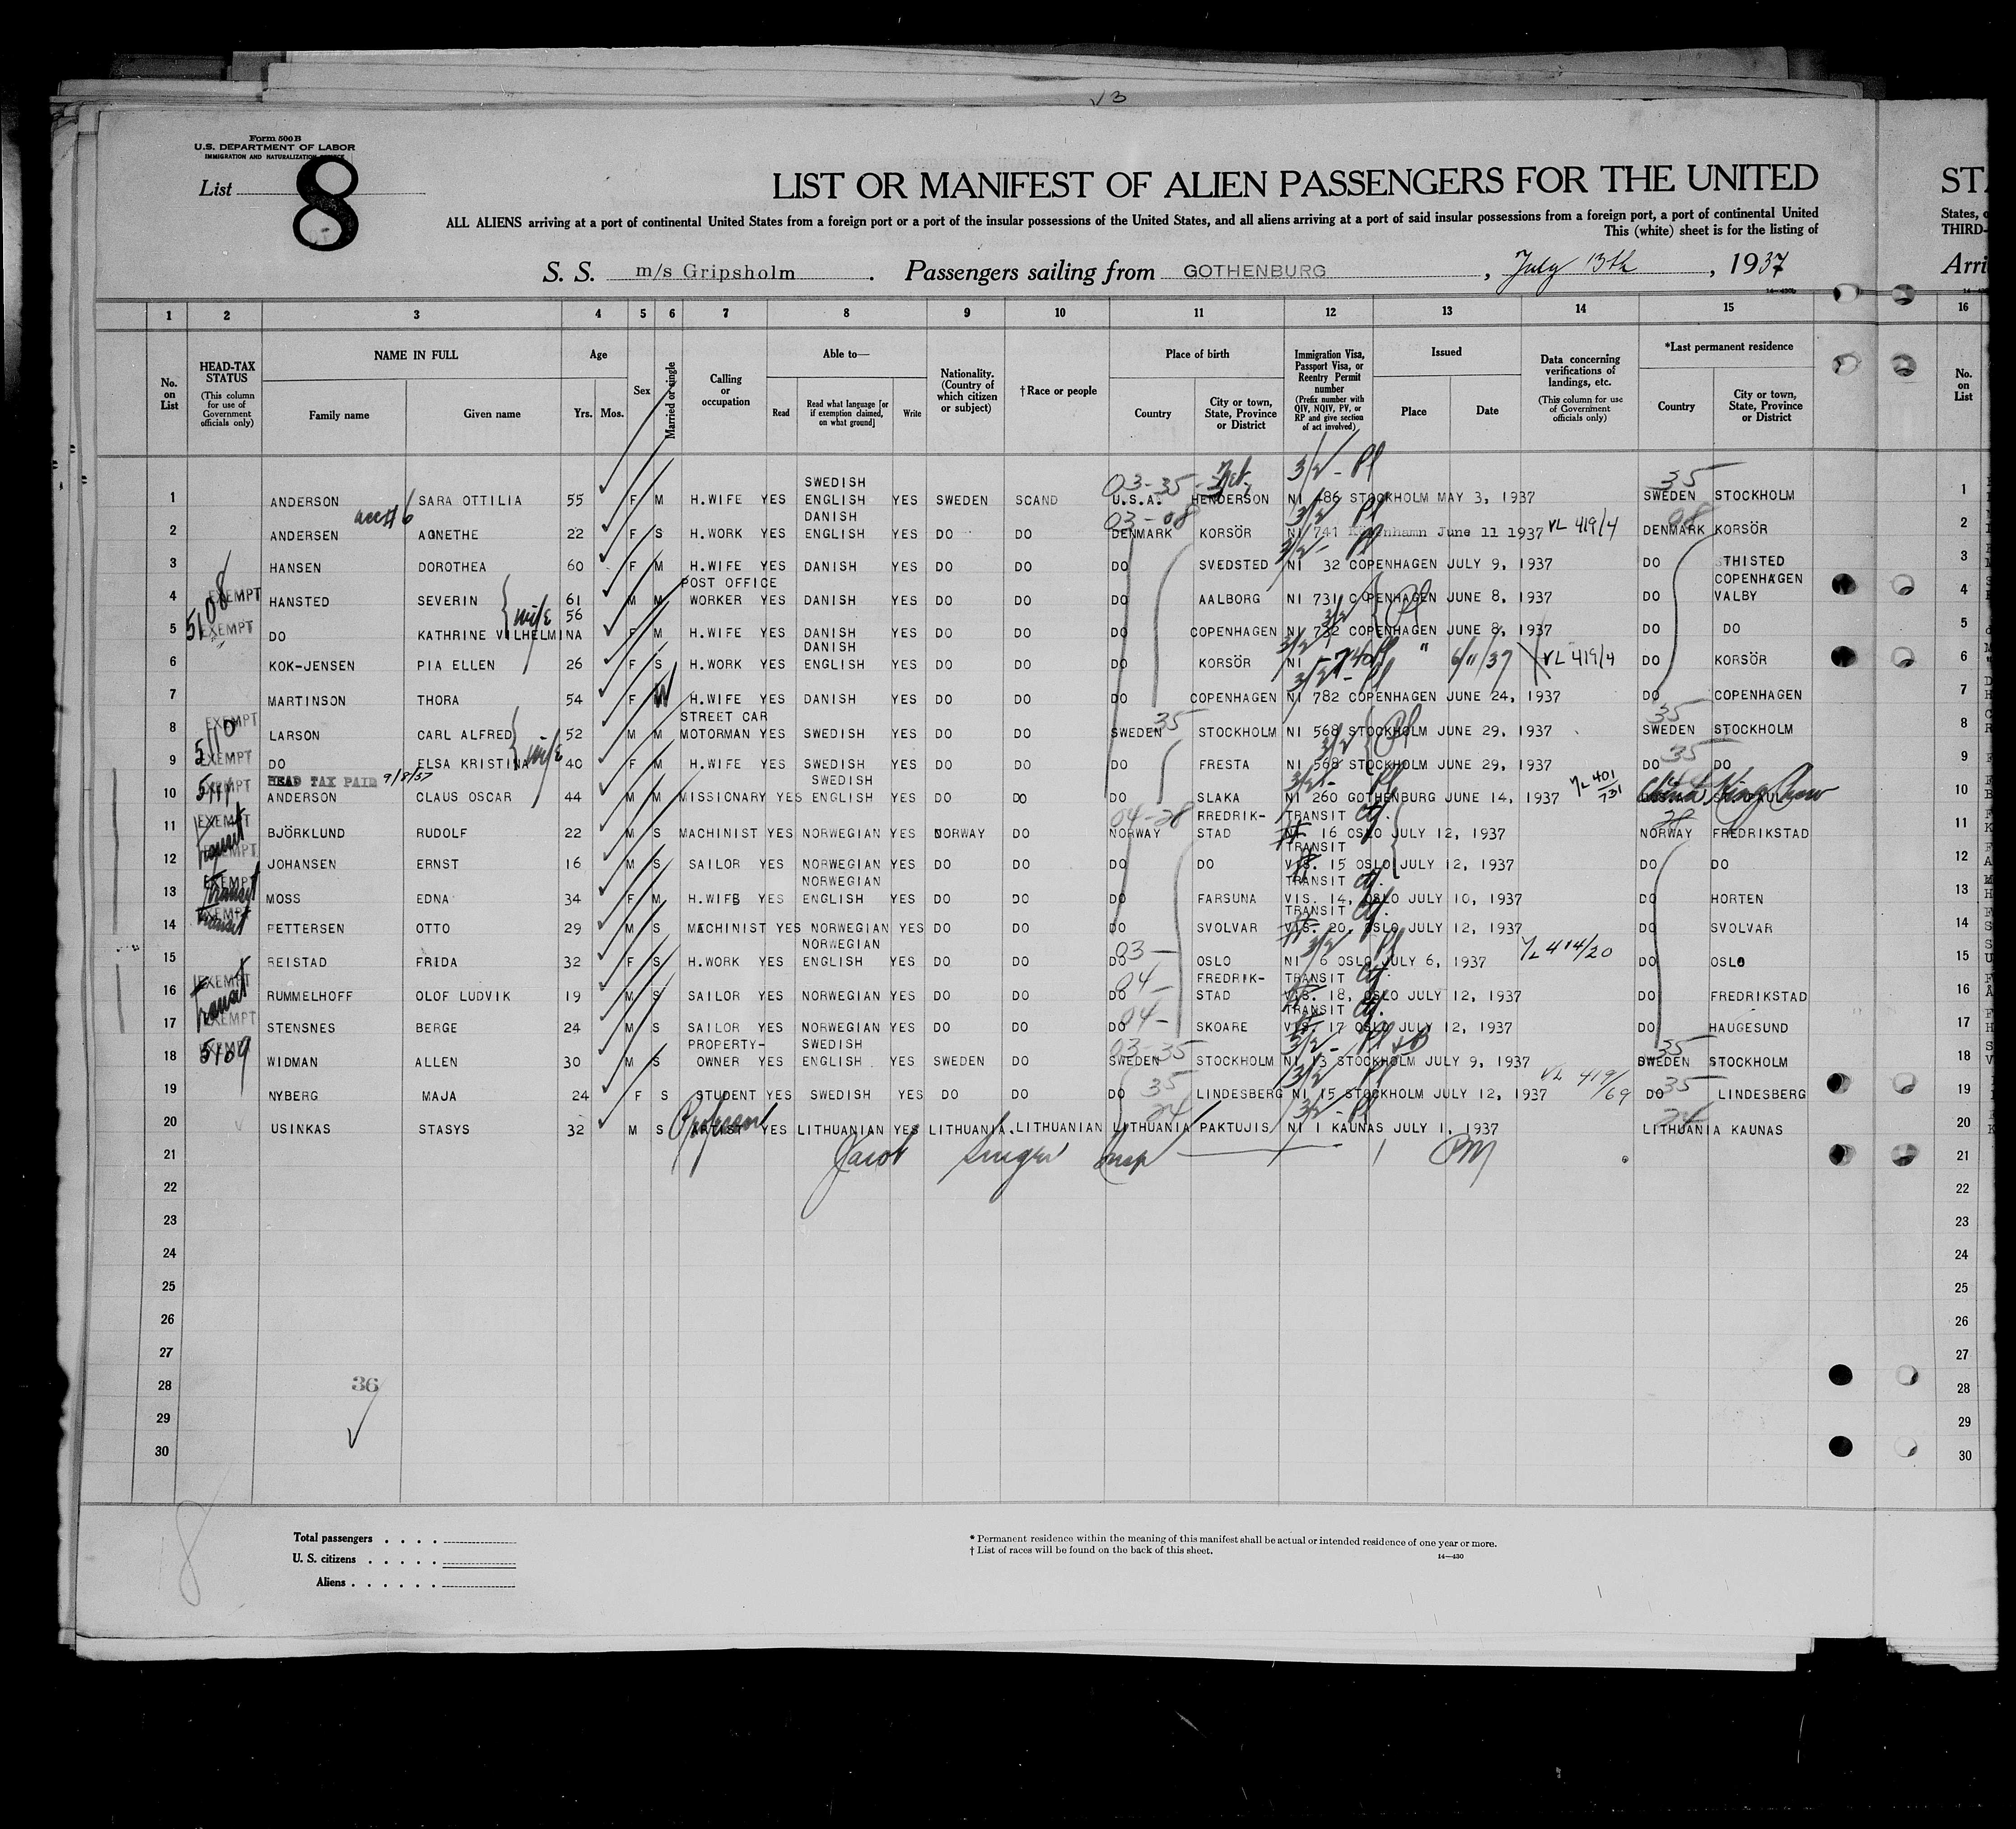 √3
Form 500 B
U.S. DEPARTMENT OF LABOR
IMMIGRATION AND NATURALIZATION SERVICE
List 8
LIST OR MANIFEST OF ALIEN PASSENGERS FOR THE UNITED
STA
ALL ALIENS arriving at a port of continental United States from a foreign port or a port of the insular possessions of the United States, and all aliens arriving at a port of said insular possessions from a foreign port, a port of continental United
States, o
This (white) sheet is for the listing of
THIRD-
S. S. m/s Gripsholm. Passengers sailing from GOTHENBURG, July 13th, 1937
Arri
1 2 3 4 5 6 7 8 9 10 11 12 13 14 15 16
No. on List
HEAD-TAX STATUS
(This column for use of Government officials only)
NAME IN FULL
Family name Given name
Age
Yrs. Mos.
Sex
Married or single
Calling or occupation
Able to—
Read
Read what language [or if exemption claimed, on what ground]
Write
Nationality. (Country of which citizen or subject)
†Race or people
Place of birth
Country
City or town, State, Province or District
Immigration Visa, Passport Visa, or Reentry Permit number
(Prefix number with QIV, NQIV, PV, or RP and give section of act involved)
Issued
Place Date
Data concerning verifications of landings, etc.
(This column for use of Government officials only)
*Last permanent residence
Country
City or town, State, Province or District
No. on List
1 ANDERSON SARA OTTILIA 55 F M H.WIFE YES SWEDISH ENGLISH YES SWEDEN SCAND 03-35 U.S.A. HENDERSON 3/2- Pl NI 486 STOCKHOLM MAY 3, 1937 35 SWEDEN STOCKHOLM 1
2 ANDERSEN AGNETHE 22 F S H.WORK YES DANISH ENGLISH YES DO DO 03-08 DENMARK KORSÖR 3/2 Pl NI 741 Köpenhamn June 11 1937 VL 419/4 08 DENMARK KORSÖR 2
3 HANSEN DOROTHEA 60 F M H.WIFE YES DANISH YES DO DO DO SVEDSTED 3/2- Pl NI 32 COPENHAGEN JULY 9, 1937 DO THISTED 3
4 5108 EXEMPT HANSTED SEVERIN 61 M M POST OFFICE WORKER YES DANISH YES DO DO DO AALBORG NI 731 COPENHAGEN JUNE 8, 1937 DO COPENHAGEN VALBY 4
5 EXEMPT DO KATHRINE VILHELMINA wife 56 F M H.WIFE YES DANISH YES DO DO DO COPENHAGEN 3/2 Pl NI 732 COPENHAGEN JUNE 8, 1937 DO DO 5
6 KOK-JENSEN PIA ELLEN 26 F S H.WORK YES DANISH ENGLISH YES DO DO DO KORSÖR 3/2 NI 740 " 6/11/37 VL 419/4 DO KORSÖR 6
7 MARTINSON THORA 54 F W H.WIFE YES DANISH YES DO DO DO COPENHAGEN 3/2- Pl NI 782 COPENHAGEN JUNE 24, 1937 DO COPENHAGEN 7
8 5110 EXEMPT LARSON CARL ALFRED 52 M M STREET CAR MOTORMAN YES SWEDISH YES DO DO SWEDEN 35 STOCKHOLM NI 568 STOCKHOLM JUNE 29, 1937 35 SWEDEN STOCKHOLM 8
9 EXEMPT DO ELSA KRISTINA wife 40 F M H.WIFE YES SWEDISH YES DO DO DO FRESTA 3/2 Pl NI 568 STOCKHOLM JUNE 29, 1937 35 DO DO 9
HEAD TAX PAID 9/8/37
10 5111 EXEMPT ANDERSON CLAUS OSCAR 44 M M MISSIONARY YES SWEDISH ENGLISH YES DO DO DO SLAKA 3/2- Pl NI 260 GOTHENBURG JUNE 14, 1937 VL 401/731 China 10
11 EXEMPT BJÖRKLUND RUDOLF 22 M S MACHINIST YES NORWEGIAN YES NORWAY DO 04-28 NORWAY FREDRIK-STAD TRANSIT 16 OSLO JULY 12, 1937 28 NORWAY FREDRIKSTAD 11
12 transit EXEMPT JOHANSEN ERNST 16 M S SAILOR YES NORWEGIAN YES DO DO DO DO TRANSIT VIS. 15 OSLO JULY 12, 1937 DO DO 12
13 EXEMPT transit MOSS EDNA 34 F M H.WIFE YES NORWEGIAN ENGLISH YES DO DO DO FARSUNA TRANSIT VIS. 14, OSLO JULY 10, 1937 DO HORTEN 13
14 EXEMPT transit PETTERSEN OTTO 29 M S MACHINIST YES NORWEGIAN YES DO DO DO SVOLVAR TRANSIT VIS. 20, OSLO JULY 12, 1937 DO SVOLVAR 14
15 REISTAD FRIDA 32 F S H.WORK YES NORWEGIAN ENGLISH YES DO DO 03- DO OSLO 3/2 Pl NI 6 OSLO JULY 6, 1937 VL 414/20 DO OSLO 15
16 EXEMPT transit RUMMELHOFF OLOF LUDVIK 19 M S SAILOR YES NORWEGIAN YES DO DO 04- DO FREDRIK-STAD TRANSIT VIS. 18, OSLO JULY 12, 1937 DO FREDRIKSTAD 16
17 EXEMPT STENSNES BERGE 24 M S SAILOR YES NORWEGIAN YES DO DO 04- DO SKOARE TRANSIT VIS. 17 OSLO JULY 12, 1937 DO HAUGESUND 17
18 EXEMPT 5109 WIDMAN ALLEN 30 M S PROPERTY-OWNER YES SWEDISH ENGLISH YES SWEDEN DO 03-35 SWEDEN STOCKHOLM 3/2- Pl NI 13 STOCKHOLM JULY 9, 1937 35 SWEDEN STOCKHOLM 18
19 NYBERG MAJA 24 F S STUDENT YES SWEDISH YES DO DO 35 DO LINDESBERG 3/2 Pl NI 15 STOCKHOLM JULY 12, 1937 VL 419/69 35 DO LINDESBERG 19
20 USINKAS STASYS 32 M S ARTIST Professor YES LITHUANIAN YES LITHUANIA. LITHUANIAN 24 LITHUANIA PAKTUJIS 3/2- Pl NI 1 KAUNAS JULY 1, 1937 24 LITHUANIA KAUNAS 20
21 Jacob Singer Insp 21
22 22
23 23
24 24
25 25
26 26
27 27
28 36 28
29 29
30 30
Total passengers . . . .
U. S. citizens . . . . .
Aliens . . . . . .
* Permanent residence within the meaning of this manifest shall be actual or intended residence of one year or more.
† List of races will be found on the back of this sheet.
14—430
8